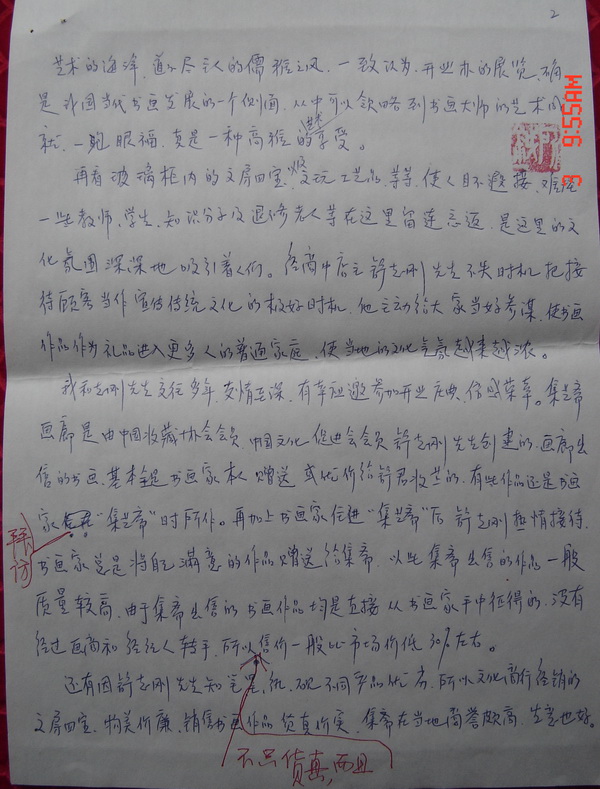 2
艺术的海洋,道不尽主人的儒雅之风,一致认为,开业办的展览,确
是我国当代书画发展的一个侧面,从中可以领略到书画大师的艺术成
就,一饱眼福,真是一种高雅的享受。
再看玻璃柜内的文房四宝,文玩工艺品,等等,使人目不暇接,难怪
一些教师、学生、知识分子及退休老人等在这里留连忘返,是这里的文
化氛围深深地吸引着人们。经商中店主舒志刚先生不失时机把接
待顾客当作宣传传统文化的极好时机,他主动给大家当好参谋,使书画
作品作为礼品进入更多人的普通家庭,使当地的文化气氛越来越浓。
我和志刚先生交往多年,友情至深,有幸应邀参加开业庆典,倍感荣幸。集艺斋
画廊是由中国收藏协会会员 中国文化促进会会员 舒志刚先生创建的,画廊出
售的书画,基本全是书画家本人赠送或优价给舒君收藏的,有些作品还是书画
家 "集艺斋"时所作。再加上书画家住进"集艺斋"后 舒志刚热情接待,
拜访
书画家总是将自己满意的作品赠送给集斋,以此集斋出售的作品一般
质量较高,由于集斋出售的书画作品均是直接从书画家手中征得的,没有
经过画商和经纪人转手,所以售价一般比市场价低30%左右。
还有因舒志刚先生知笔、墨、纸、砚不同产品优劣,所以文化商行经销的
文房四宝,物美价廉,销售书画作品货真价实,集斋在当地商誉颇高,生意也好。
不只货真,而且
9:55AM